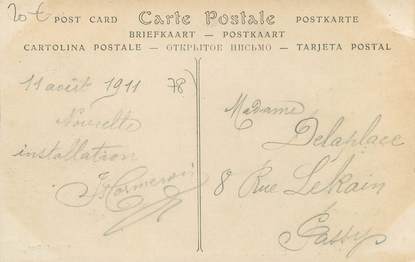 20 €
POST CARD Carte Postale POSTKARTE
BRIEFKAART — POSTKAART
CARTOLINA POSTALE — ОТКРЫТОЕ ПИСЬМО — TARJETA POSTAL
11 août 1911
78
Nouvelle
installation
Madame
Delaplace
8 Rue Lekain
Passy